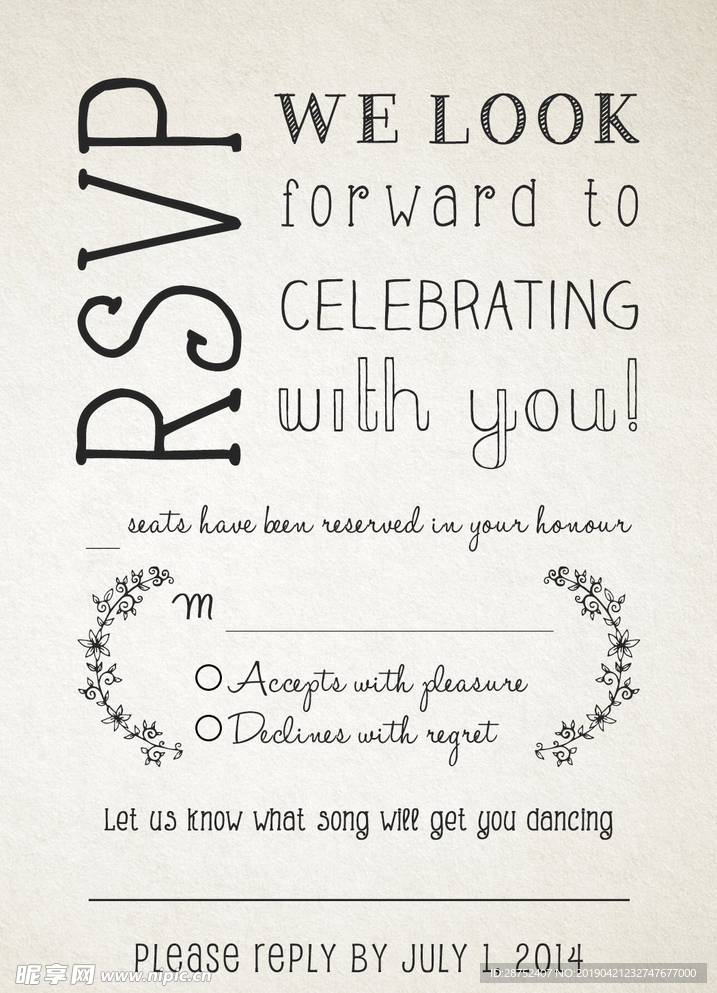 RSVP
WE LOOK
forward to
CELEBRATING
with you!
__ seats have been reserved in your honour
M
Accepts with pleasure
Declines with regret
Let us know what song will get you dancing
PLEASE REPLY BY JULY 1, 2014
昵享网 www.nipic.cn
ID:28752407 NO:20190421232747677000